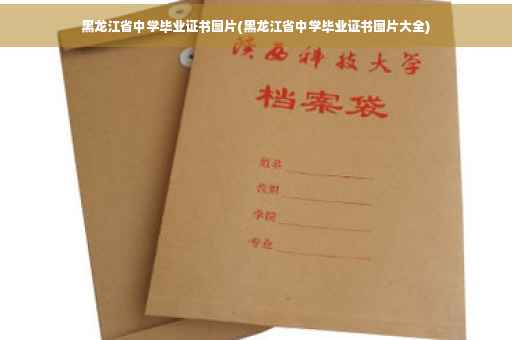 黑龙江省中学毕业证书图片(黑龙江省中学毕业证书图片大全)
陕西科技大学
档案袋
姓名
学院
专业